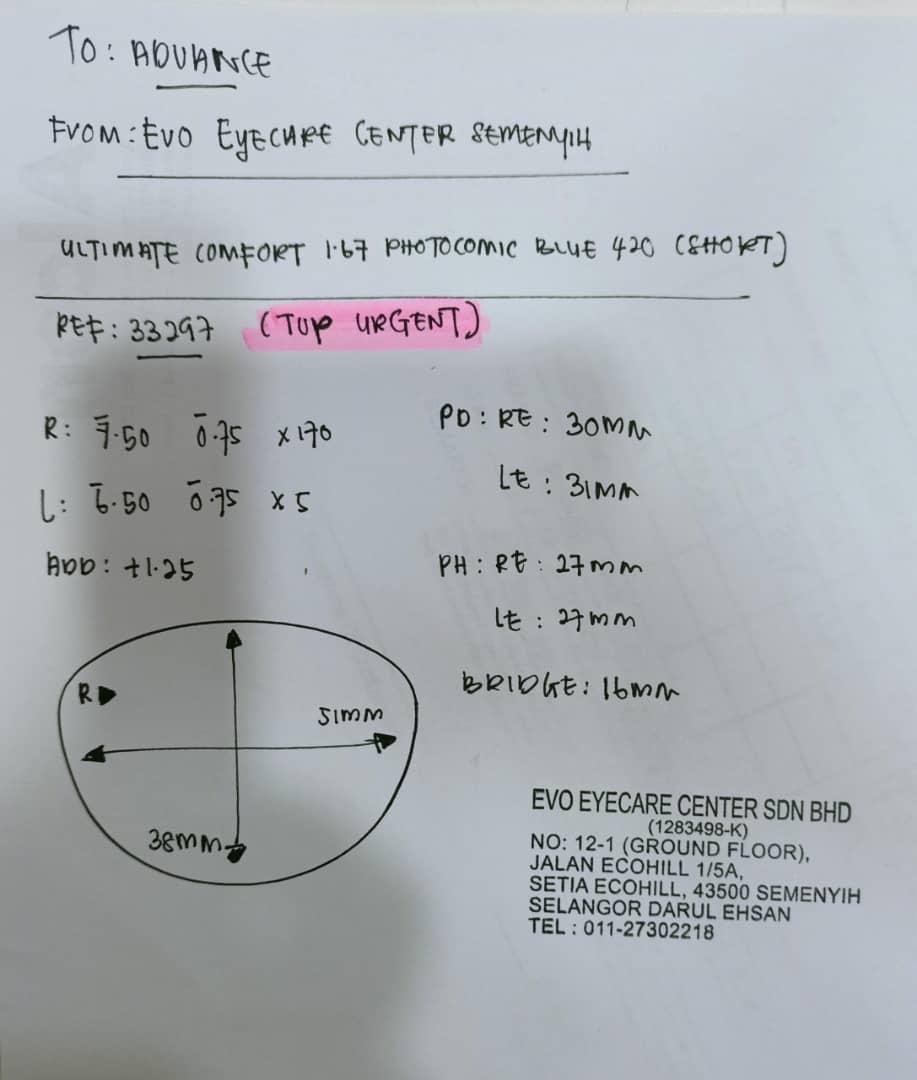 TO: ADVANCE
FROM: EVO EYECARE CENTER SEMENYIH
ULTIMATE COMFORT 1.67 PHOTOCOMIC BLUE 420 (SHORT)
REF: 33297 (TOP URGENT)
R: -7.50 -0.75 x 170
L: -6.50 -0.75 x 5
ADD: +1.25
PD: RE: 30MM
LE: 31MM
PH: RE: 27mm
LE: 27mm
BRIDGE: 16mm
R
51mm
38mm
EVO EYECARE CENTER SDN BHD
(1283498-K)
NO: 12-1 (GROUND FLOOR),
JALAN ECOHILL 1/5A,
SETIA ECOHILL, 43500 SEMENYIH
SELANGOR DARUL EHSAN
TEL : 011-27302218